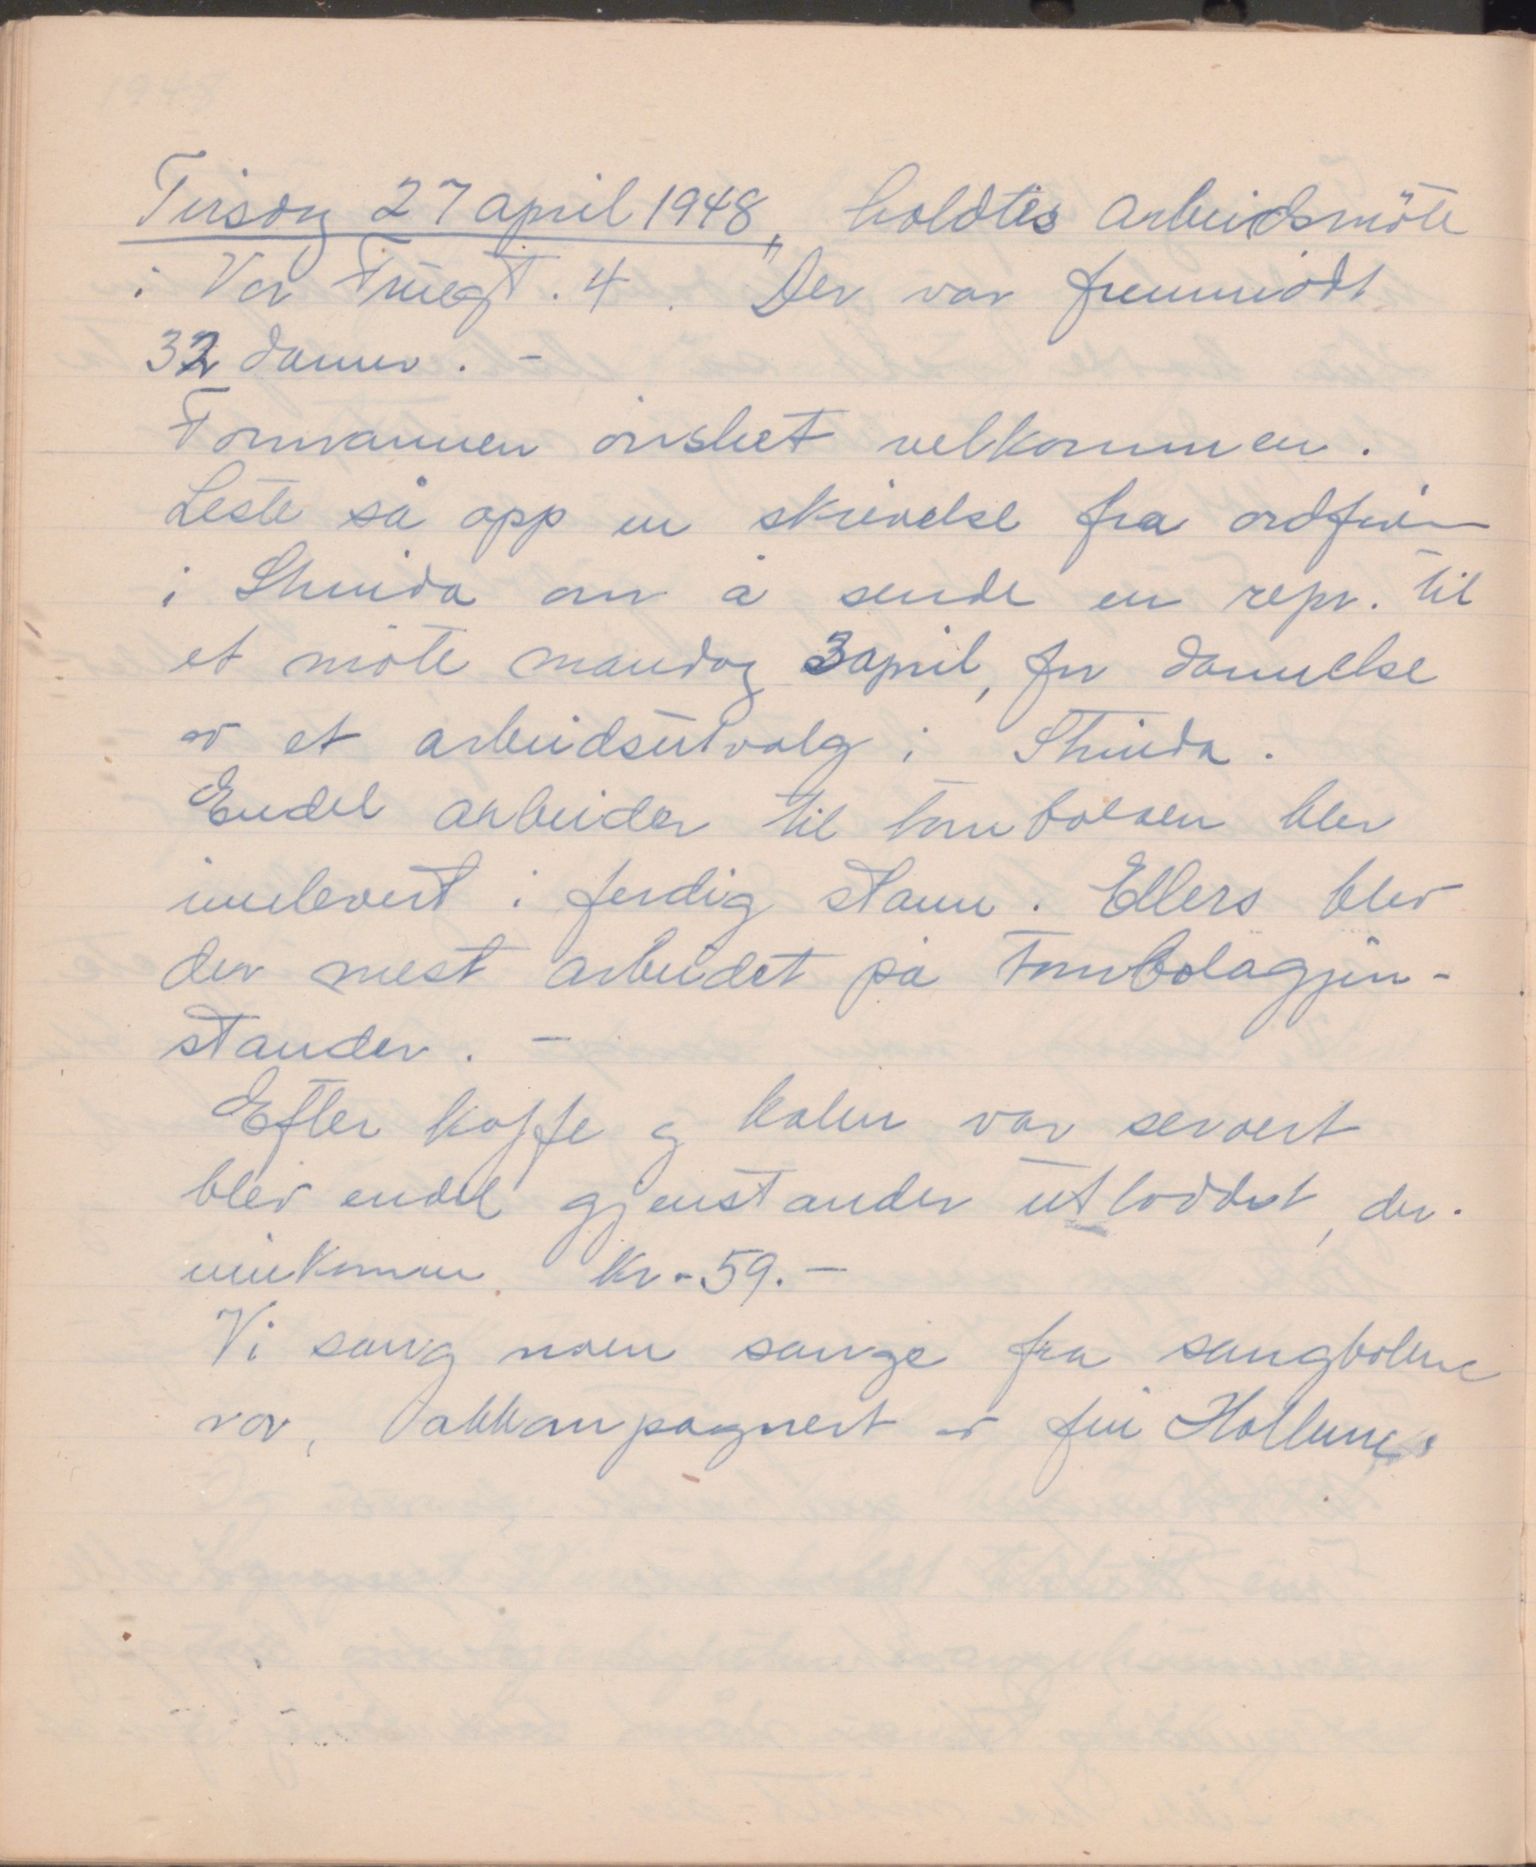 Tirsdag 27 april 1948, holdtes arbeidsmöte
i Vor Fruegt. 4. Der var fremmödt
32 damer. -
Formannen önsket velkommen.
Leste så opp en skrivelse fra ordförer
i Strinda om å sende en repr. til
et möte mandag 3 april, for dannelse
av et arbeidsutvalg i Strinda.
Endel arbeider til tombolaen blev
innlevert i ferdig stann. Ellers blev
der mest arbeidet på Tombolagjen-
stander. -
Efter kaffe og kaker var servert
blev endel gjenstander utloddet, der
innkommm kr. 59.-
Vi sang noen sange fra sangbökene
vor, akkompagnert av fru